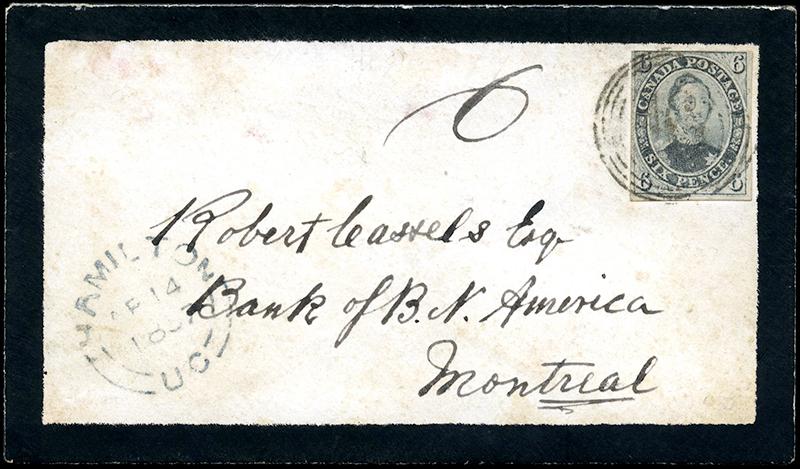 6
6 6
CANADA POSTAGE
SIX PENCE
6 6
Robert Cassels Esq
Bank of B.N. America
Montreal
HAMILTON
14
U.C.